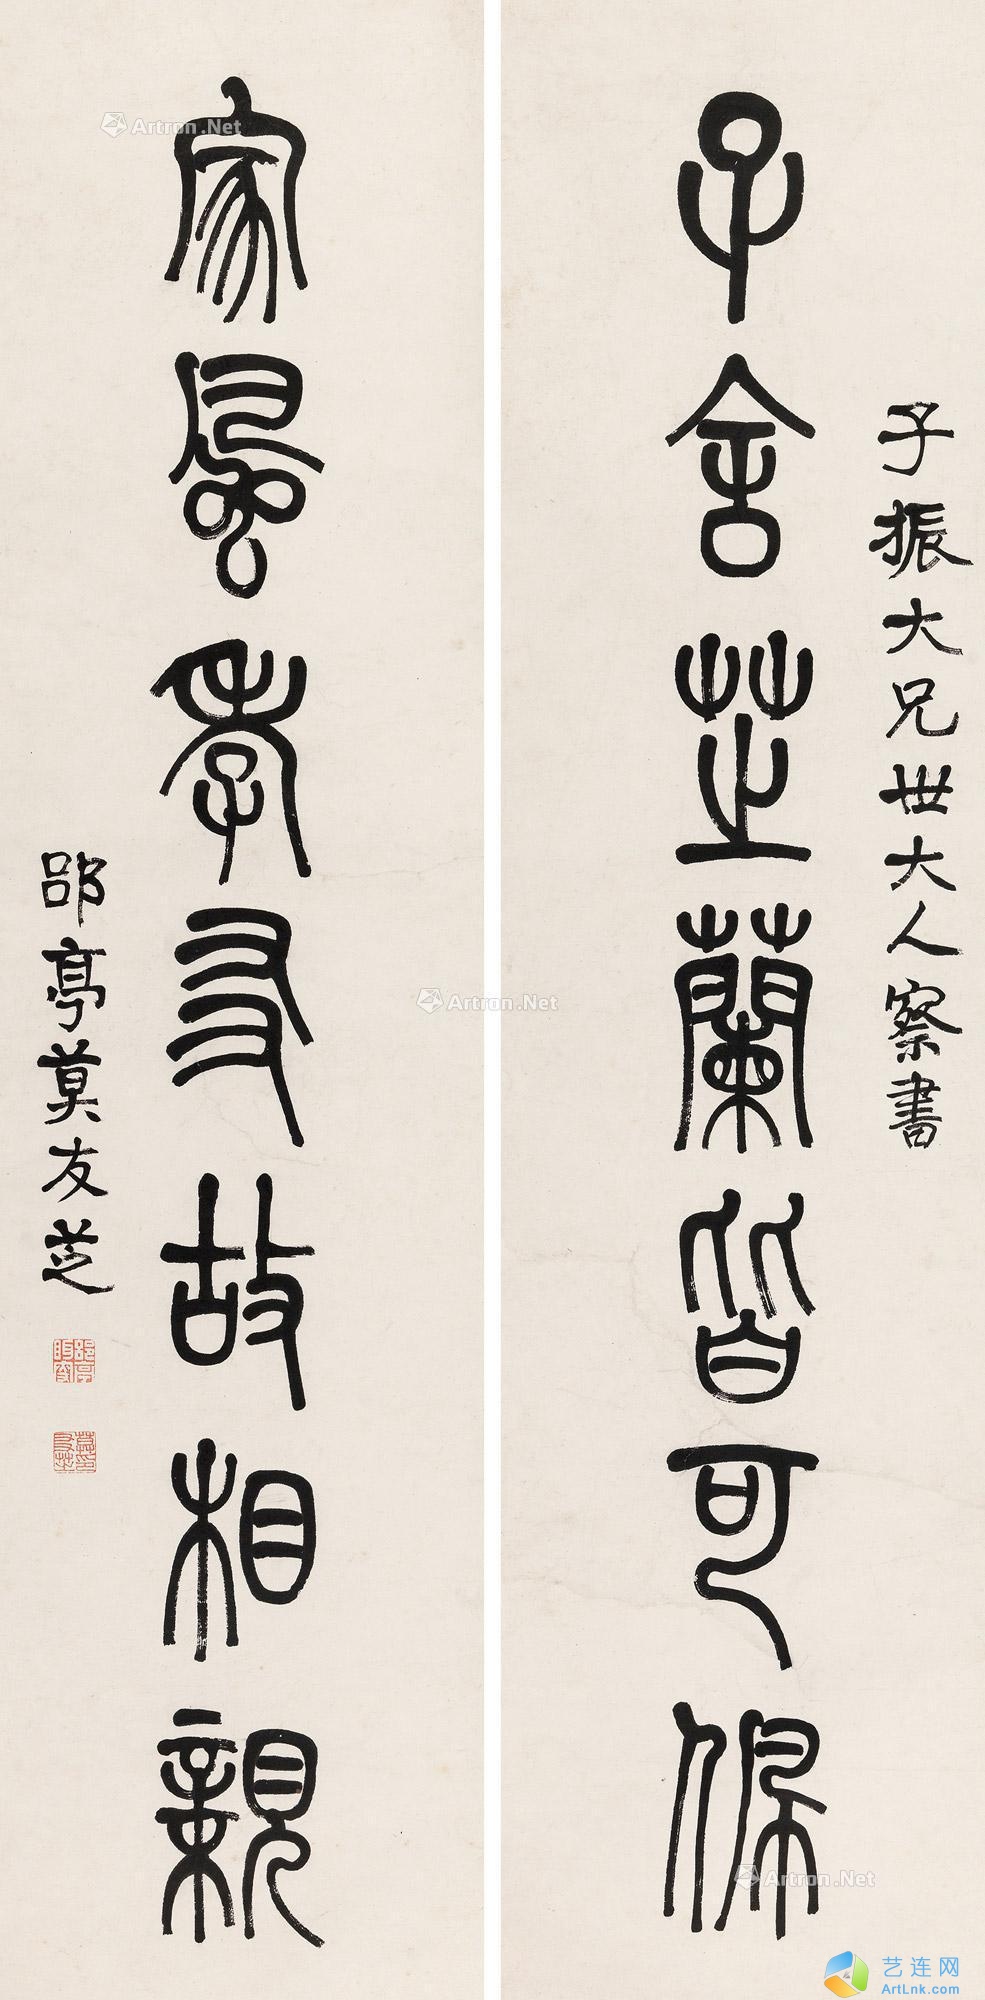 子振大兄世大人察書
子舍芝蘭皆可佩
家風孝友故相親
郘亭莫友芝
郘亭眲叟
莫友芝印
Artron.Net
Artron.Net
Artron.Net
艺连网
ArtLnk.com